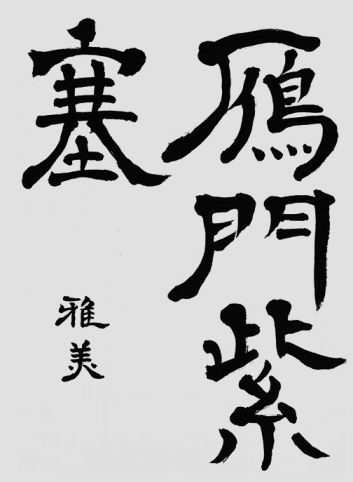 鴈門紫
塞
雅美